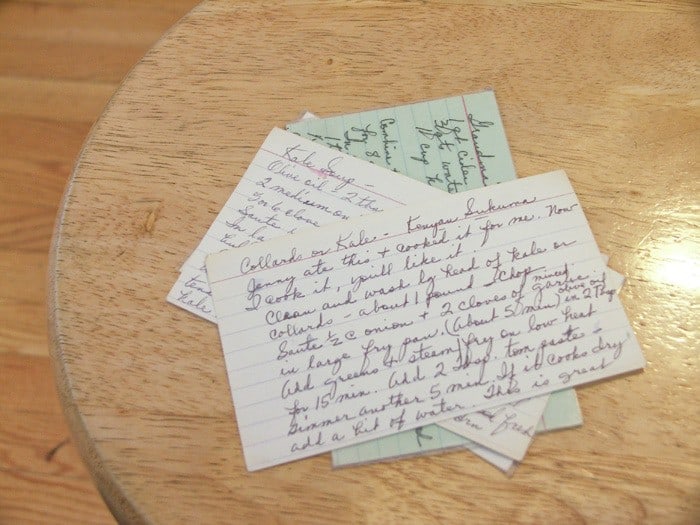 Collards or Kale - Kenyan Sukuroa
Jenny ate this + cooked it for me. Now
I cook it, you'll like it.
Clean and wash by head of kale or
collards - about 1 pound - Chop
Sauté ½ c onion + 2 cloves of garlic, minced
in large fry pan. (about 5 min) in 2 Tbsp olive oil
Add greens + steam/fry on low heat
for 15 min. Add 2 Tbsp. tom paste -
Simmer another 5 min. If it cooks dry
add a bit of water. This is great
Kale Soup -
Olive oil - 2 tbs
2 medium on
Sauté
Kale
Grandma
1 gal cider
water
cup
Combine
for 8